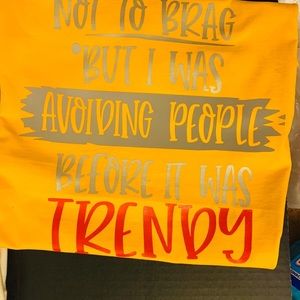 NOT TO BRAG
*BUT I WAS
AVOIDING PEOPLE
BEFORE IT WAS
TRENDY